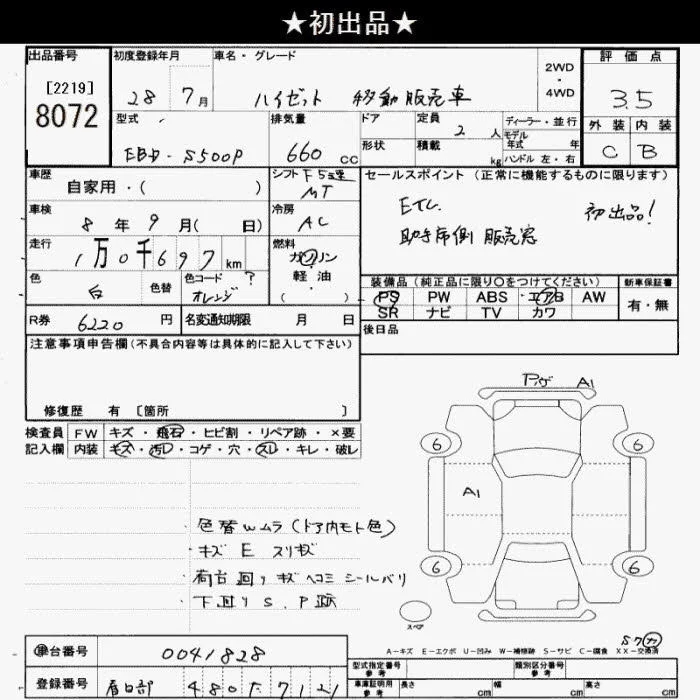 ★初出品★
出品番号
[2219]
8072
初度登録年月
28 7月
車名・グレード
ハイゼット 移動販売車
2WD
・
4WD
評価点
3.5
外装 内装
C B
型式
EBD-S500P
排気量
660 cc
ドア
形状
定員
2 人
積載
kg
ディーラー・並行
モデル
年式 年
ハンドル 左・右
車歴
自家用・( )
シフト F5速
MT
セールスポイント (正常に機能するものに限ります)
ETC
初出品!
助手席側 販売窓
車検
8年 9月( 日)
冷房
AC
走行
1万0千697km
燃料
ガソリン
・
軽・油
( )
色
白
色替
色コード ?
オレンジ
装備品 (純正品に限り〇をつけてください)
PS PW ABS エアB AW
SR ナビ TV カワ
新車保証書
有・無
R券 6220 円
名変通知期限 月 日
後日品
注意事項申告欄(不具合内容等は具体的に記入して下さい)
修復歴 有 [箇所 ]
検査員
記入欄
FW キズ・飛石・ヒビ割・リペア跡・×要
内装 キズ・汚レ・コゲ・穴・スレ・キレ・破レ
・色替wムラ(ドア内モト色)
・キズ E スリキズ
・荷台回りキズ ヘコミ シールバリ
・下回りS.P跡
Pハゲ A1
6 6
A1
6 6
スペア
A-キズ E-エクボ U-凹み W-補修跡 S-サビ C-腐食 XX-交換済
車台番号 0041828
登録番号 春日部 480 た 7121
型式指定番号
参考
類別区分番号
参考
車庫証明用
参考
長さ cm 幅 cm 高さ cm